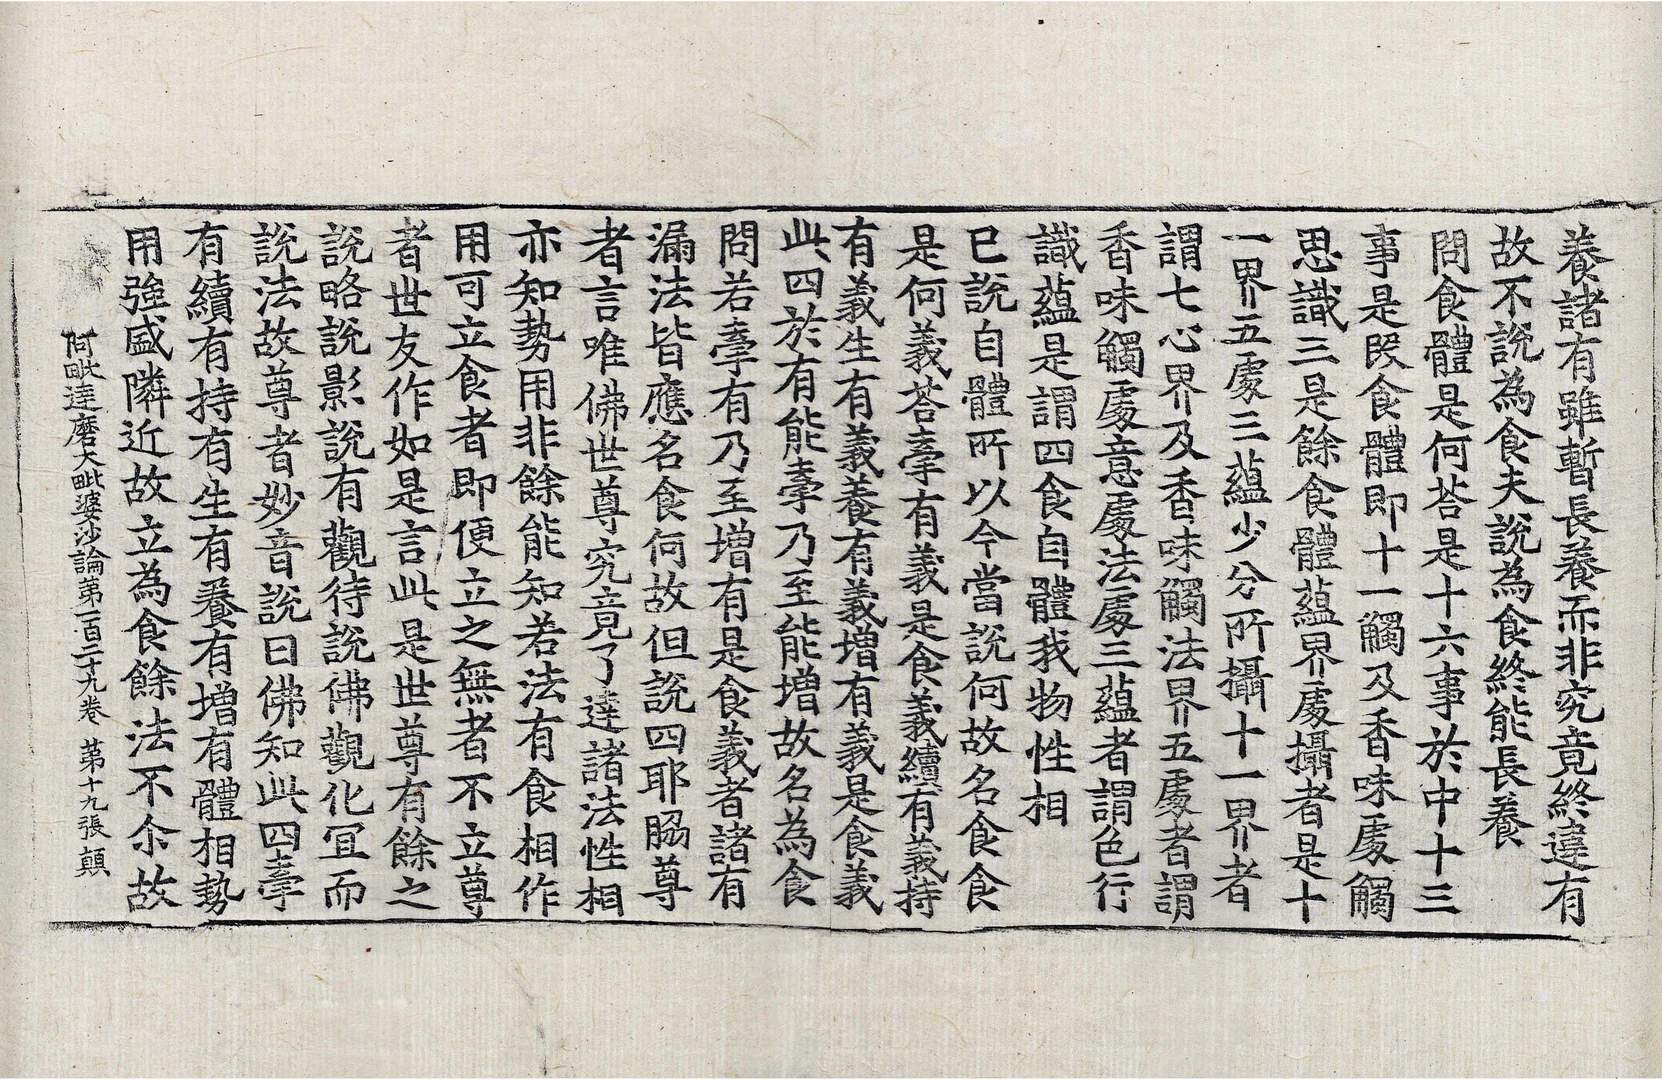 養諸有雖暫長養而非究竟終違有
故不說為食夫說為食終能長養
問食體是何荅是十六事於中十三
事是段食體即十一觸及香味處觸
思識三是餘食體蘊界處攝者是十
一界五處三蘊少分所攝十一界者
謂七心界及香味觸法界五處者謂
香味觸處意處法處三蘊者謂色行
識蘊是謂四食自體我物性相
已說自體所以今當說何故名食食
是何義荅牽有義是食義續有義持
有義生有義養有義增有義是食義
此四於有能牽乃至能增故名為食
問若牽有乃至增有是食義者諸有
漏法皆應名食何故但說四耶脇尊
者言唯佛世尊究竟了達諸法性相
亦知勢用非餘能知若法有食相作
用可立食者即便立之無者不立尊
者世友作如是言此是世尊有餘之
說略說影說有觀待說佛觀化冝而
說法故尊者妙音說曰佛知此四牽
有續有持有生有養有增有體相勢
用強盛隣近故立為食餘法不尒故
阿毗達磨大毗婆沙論第一百二十九卷 第十九張 顛